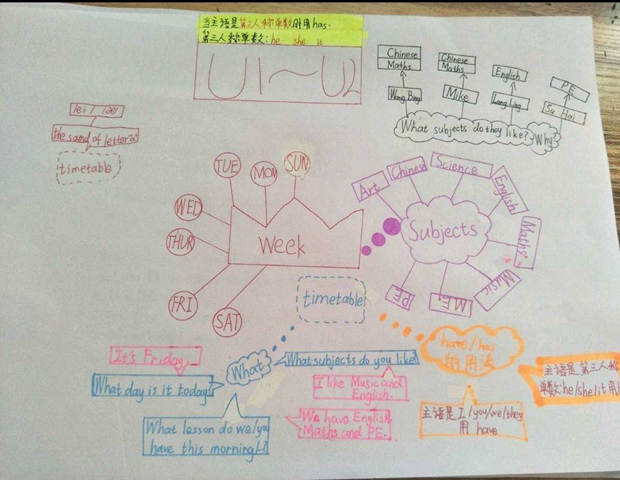 当主语是第三人称单数时用has.
第三人称单数: he she it
U1~U2
Chinese
Maths
Chinese
Maths
English
PE
Wang Bing
Mike
Ling Ling
Su Hai
What subjects do they like?
Why
/ei/ /æ/
the sound of letter a
timetable
TUE
MON
SUN
WED
THUR
FRI
SAT
Week
Art
Chinese
Science
English
Maths
Music
M.E
PE
Subjects
timetable
It's Friday.
What day is it today
What
What subjects do you like
I like Music and
English.
What lesson do we/you
have this morning
We have English
Maths and PE.
have/has
的用法
主语是I/you/we/they
用 have
主语是第三人称
单数:he/she/it用